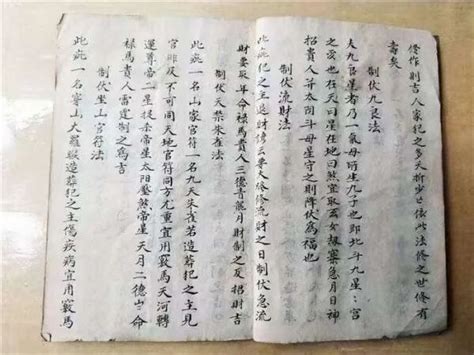 修作則吉人家犯之多夭折少亡依此法修之世修有
壽矣
制伏九良法
夫九良星者乃一氣母所生九子也即北斗九星宮
之愛也在天曰星在地曰煞宜取玄女急月日神
招貴人并太陰斗母星守之則降伏為福也
制伏流財法
此疵犯之主退財修云要大修流財之日制伏急流
財要取年命祿馬貴人三德青龍月財制之反招財吉
制伏天禁朱雀法
此疵一名山家官符一名九天朱雀若造葬犯之主見
官非及不可同天地官符同方尤重宜用竅馬天河轉
運尊帝二星提杀帝星太陽壓煞帝星天月二德命
祿馬貴人雷霆制之為吉
制伏坐山官符法
此疵一名穿山大羅睺造葬犯之主傷疾病宜用竅馬